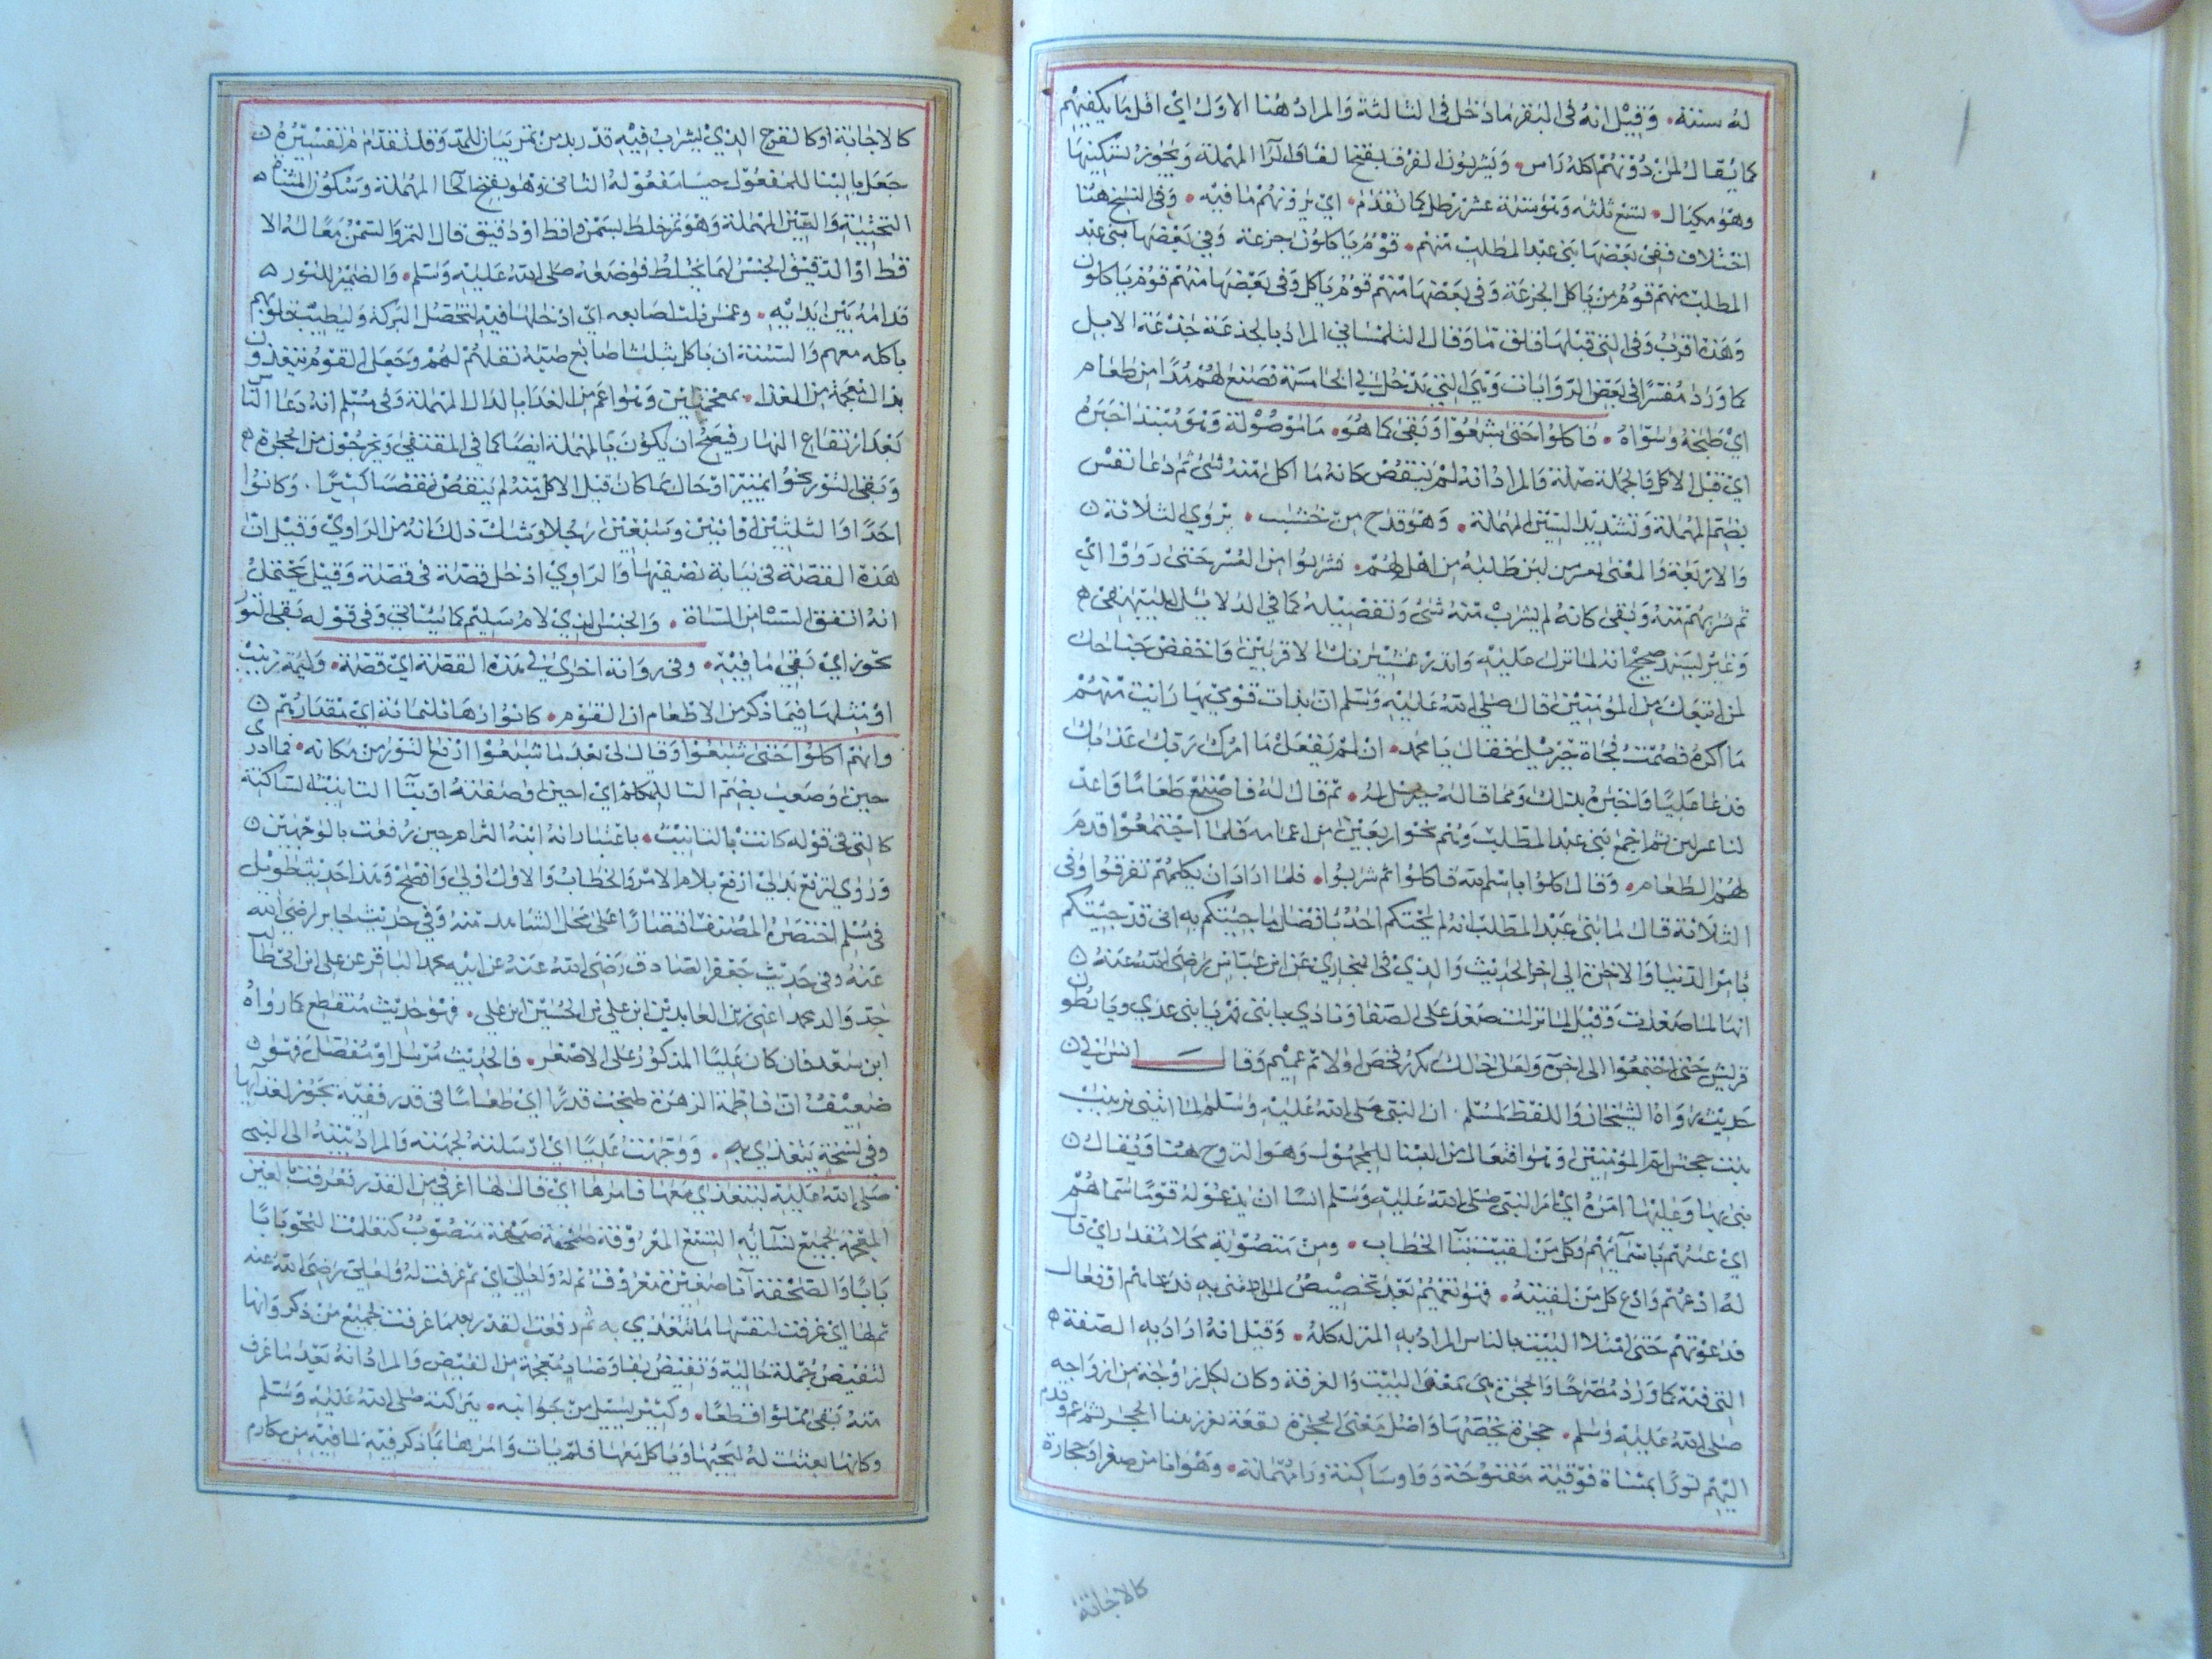 له سنة. وقيل انه في البقر ما دخل في الثالثة والمراد هنا الاول اي اقل ما يكفيهم
كما يقال لمن دونهم اكلة راس. ويشربون الفرق بفتح الفاء والرا المهملة ويجوز تسكينها
وهو مكيال. يسع ثلثه وستة عشر رطل كما تقدم. اي يرويهم ما فيه. وفي النسخ هنا
اختلاف ففي بعضها بني عبد المطلب منهم. قوم ياكلون جزعة وفي بعضها بني عبد
المطلب منهم قوم من ياكل الجزعة وفي بعضها منهم قوم ياكل وفي بعضها منهم قوم ياكلون
وهذه اقرب وفي التي قبلها قلق ما وقال التلمساني المراد بالجذعة جذعة الابل
كما ورد مفسرا في بعض الروايات وهي التي تدخل في الخامسة فصنع لهم مدا من طعام
اي طبخه وسواه. فاكلوا حتى شبعوا وبقى كما هو. ما موصولة وهو مبتدا خبره
اي قبل الاكل والجملة صلة والمراد انه لم ينقص كانه ما اكل منه شئ ثم دعا بعس
بضم المهملة وتشديد السين المهملة. وهو قدح من خشب. يروي الثلاثة
والاربعة والمعنى بعس من لبن طلبه من اهل لهم. فشربوا من العس حتى رووا اي
تم شربهم منه وبقى كانه لم يشرب منه شئ وتفصيله كما في الدلائل للبيهقي
وغيره بسند صحيح انه لما نزل عليه وانذر عشيرتك الاقربين واخفض جناحك
لمن اتبعك من المؤمنين قال صلى الله عليه وسلم ان بدات قومي بها رايت منهم
ما اكره فصمت فجاة جبريل فقال يا محمد. ان لم تفعل ما امرك ربك عذبك
فدعا عليا فاخبره بذلك وبما قاله جبريل له. ثم قال له فاصنع طعاما واعد
لنا عس لبن ثم اجمع بني عبد المطلب وهم نحو اربعين من اعمامه فلما اجتمعوا قدم
لهم الطعام. وقال كلوا باسم الله فاكلوا ثم شربوا. فلما اراد ان يكلمهم تفرقوا وفي
الثلاثة قال لما بني عبد المطلب انه لم يجئكم احد بافضل ما جيتكم به اني قد جيتكم
بامر الدنيا والاخرة الى اخر الحديث والذي في البخاري عن ابن عباس رضي الله عنه
انها لما صعدت وقيل لما نزلت صعد على الصفا ونادى يا بني فهر يا بني عدي ويا بطون
قريش حتى اجتمعوا الى اخره ولعل ذلك تكرر فخص اولا ثم عمهم وقال انس في
حديث رواه الشيخان واللفظ لمسلم. ان النبي صلى الله عليه وسلم لما ابتنى بزينب
بنت جحش ام المؤمنين وهو افتعال من البنا للمجهول وهو الزوج هنا ويقال
بنى بها وعليها امره اي امر النبي صلى الله عليه وسلم انسا ان يدعو له قوما سماهم
اي عينهم باسمائهم وكل من لقيت بتا الخطاب. ومن منصوبة محلا مقدر اي قال
له ادعهم وادع كل من لقيته. فهو تعميم بعد تخصيص فدعاهم او فقال
فدعوتهم حتى امتلا البيت بالناس المراد به المنزل كله. وقيل انه اراد به الصفة
التي فيه كما ورد مصرحا والحجرة هي بمعنى البيت والغرفة وكان لكل زوجة من ازواجه
صلى الله عليه وسلم. حجرة تخصها واصل معنى الحجرة بقعة وقدم
اليهم تورا بمثناة فوقية مفتوحة وواو ساكنة ورا مهملة. وهو انا من صفر او حجارة
كالاجانة
كالاجانة او كالقدح الذي يشرب فيه قدر بد من تمر بيان للمد وقد تقدم تفسيره
جعل بالبنا للمفعول حيسا مفعوله الثاني وهو بفتح الحا المهملة وسكون المثناة
التحتية والسين المهملة وهو تمر خلط بسمن واقط او دقيق قال التمر والسمن معا له الا
قط او الدقيق الجنس لما يختلط فوضعه صلى الله عليه وسلم. والضمير للتور
قدامه بين يديه. وغمس ثلث اصابعه اي ادخلها فيه لتحصل البركة وليطيب قلوبهم
باكله معهم والسنة ان ياكل بثلث اصابع وجعل القوم يتغذون
بذال معجمة من الغذا. بمعجمتين وهو اعم من الغدا بالدال المهملة وفي مسلم انه دعا الناس
بعد ارتفاع النهار فيصح ان يكون بالمهملة ايضا كما في المقتفى ويخرجون من الحجرة
وبقى التور نحوا تمييز او حال مما كان قبل الاكل منه لم ينقص نقصا كثيرا. وكانوا
احدا او اثنين وسبعين رجلا وشك ذلك انه من الراوي وقيل ان
هذه القصة في بناية بصفيها والراوي ادخل قصة في قصة وقيل يحتمل
انه اتفق الشا من الشاة. والخبز الذي لام سليم كما سياتي وفي قوله بقى التور
تجوز اي بقى ما فيه. وفي رواية اخرى في هذه القصة اي قصة. وليمة زينب
او مثلها فيما ذكر من الاطعام ان القوم. كانوا زها ثلثمائة اي مقدارهم
وانهم اكلوا حتى شبعوا وقال لي بعد ما شبعوا ارفع التور من مكانه. فما ادري
حين وضعت بضم التا للمتكلم اي احين وضعته او بتا التانيث الساكنة
كالتي في قوله كانت بالتانيث. باعتبار انه انية اكثر ام حين رفعت بالوجهين
وروي لترفع بدل ارفع بلام الامر والخطاب والاول اولى وافصح وهذا حديث طويل
في مسلم اختصره المصنف اقتصارا على محل الشاهد منه وفي حديث جابر رضي الله
عنه وفي حديث جعفر الصادق رضي الله عنه عن ابيه محمد الباقر عن علي ابن ابي طالب
جد والد محمد اعني زين العابدين ابن علي بن الحسين ابن علي. فهو حديث منقطع كما رواه
ابن سعد فان كان عليا المذكور على الاصغر. فالحديث مرسل او معضل فهو
ضعيف ان فاطمة الزهرة طبخت قدرا اي طعاما في قدر ففيه تجوز لغدائها
وفي نسخة يتغذى به. ووجهت عليا اي ارسلته لجهته والمراد بيته الى النبي
صلى الله عليه ليتغذي معها فامرها اي قال لها اغرفي من القدر فغرفت بالغين
المعجمة لجميع نسائه التسع المعروفة صحفة صحفة منصوب كتعلمت النحو بابا
بابا والصحفة انا صغير معروف ثم له ولعلي اي ثم غرفت له ولعلي رضي الله عنه
ثم لها اي غرفت لنفسها ما تتغذى به ثم رفعت القدر بعد ما غرفت لجميع من ذكر وانها
لتفيض جملة حالية وتفيض بفا وضاد معجمة من الفيض والمراد انه بعد ما غرف
منه بقى مملؤا قطعا. وكثير يسيل من جوانبه. ببركته صلى الله عليه وسلم
وكانها بعثت له ليجيها وياكل معها فلم يات وامرها بما ذكر فيه لما فيه من مكارم